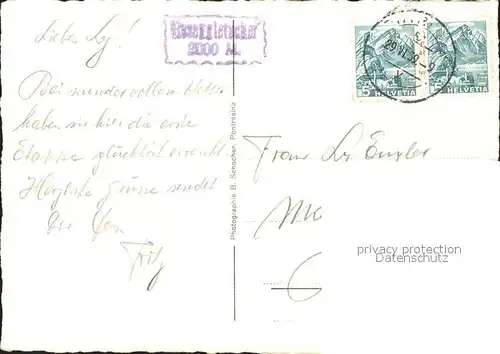 Liebe Ly!
Bei wundervollem Wetter
haben wir hier die erste
Etappe glücklich erreicht.
Herzliche Grüsse sendet
Fritz
2000 M.
Photographie B. Schocher, Pontresina
5 HELVETIA
HELVETIA
Frau Ly Engler
privacy protection
Datenschutz